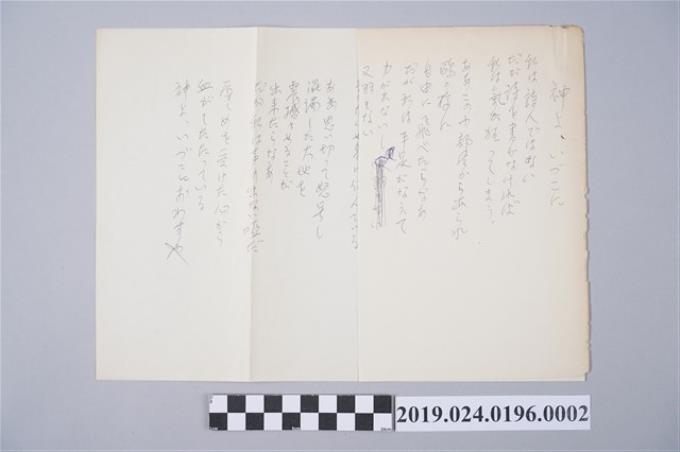 神よ、いづこに
私は詩人ではない
だが詩を書かなければ
私は気が狂ってしまう。
ああこの部屋から出られ
鴎の様に
自由に飛べたらなあ
だが私は手足がなえて
力がない
又羽もない
ああ思い切って怒号し
混濁した大地を
震撼させることが
出来たらなあ
だが私は声の出ない
辱しめを受けた心から
血がしたたっている
神よ、いづこにおわすや
2019.024.0196.0002